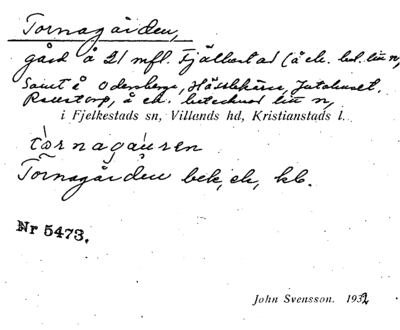 Tornagården,
gård å 21 mfl. Fjälkestad (å ek. bet. litt n,
samt å Odersberga, Hässlekärr, Jutahuset,
Råestorp, å ek. betecknad litt n,
i Fjelkestads sn, Villands hd, Kristianstads l.
Tornagården bek, ek, kb.
Nr 5473.
John Svensson. 1932